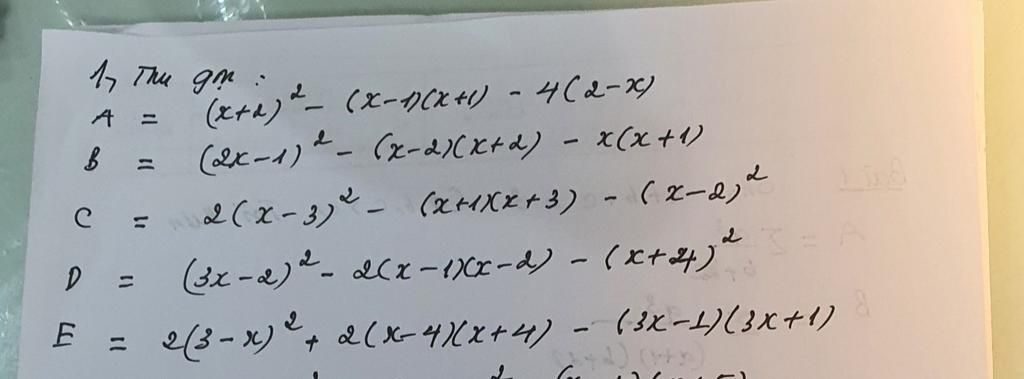 1, Thu gọn :
A = (x+2)² - (x-1)(x+1) - 4(2-x)
B = (2x-1)² - (x-2)(x+2) - x(x+1)
C = 2(x-3)² - (x+1)(x+3) - (x-2)²
D = (3x-2)² - 2(x-1)(x-2) - (x+4)²
E = 2(3-x)² + 2(x-4)(x+4) - (3x-1)(3x+1)